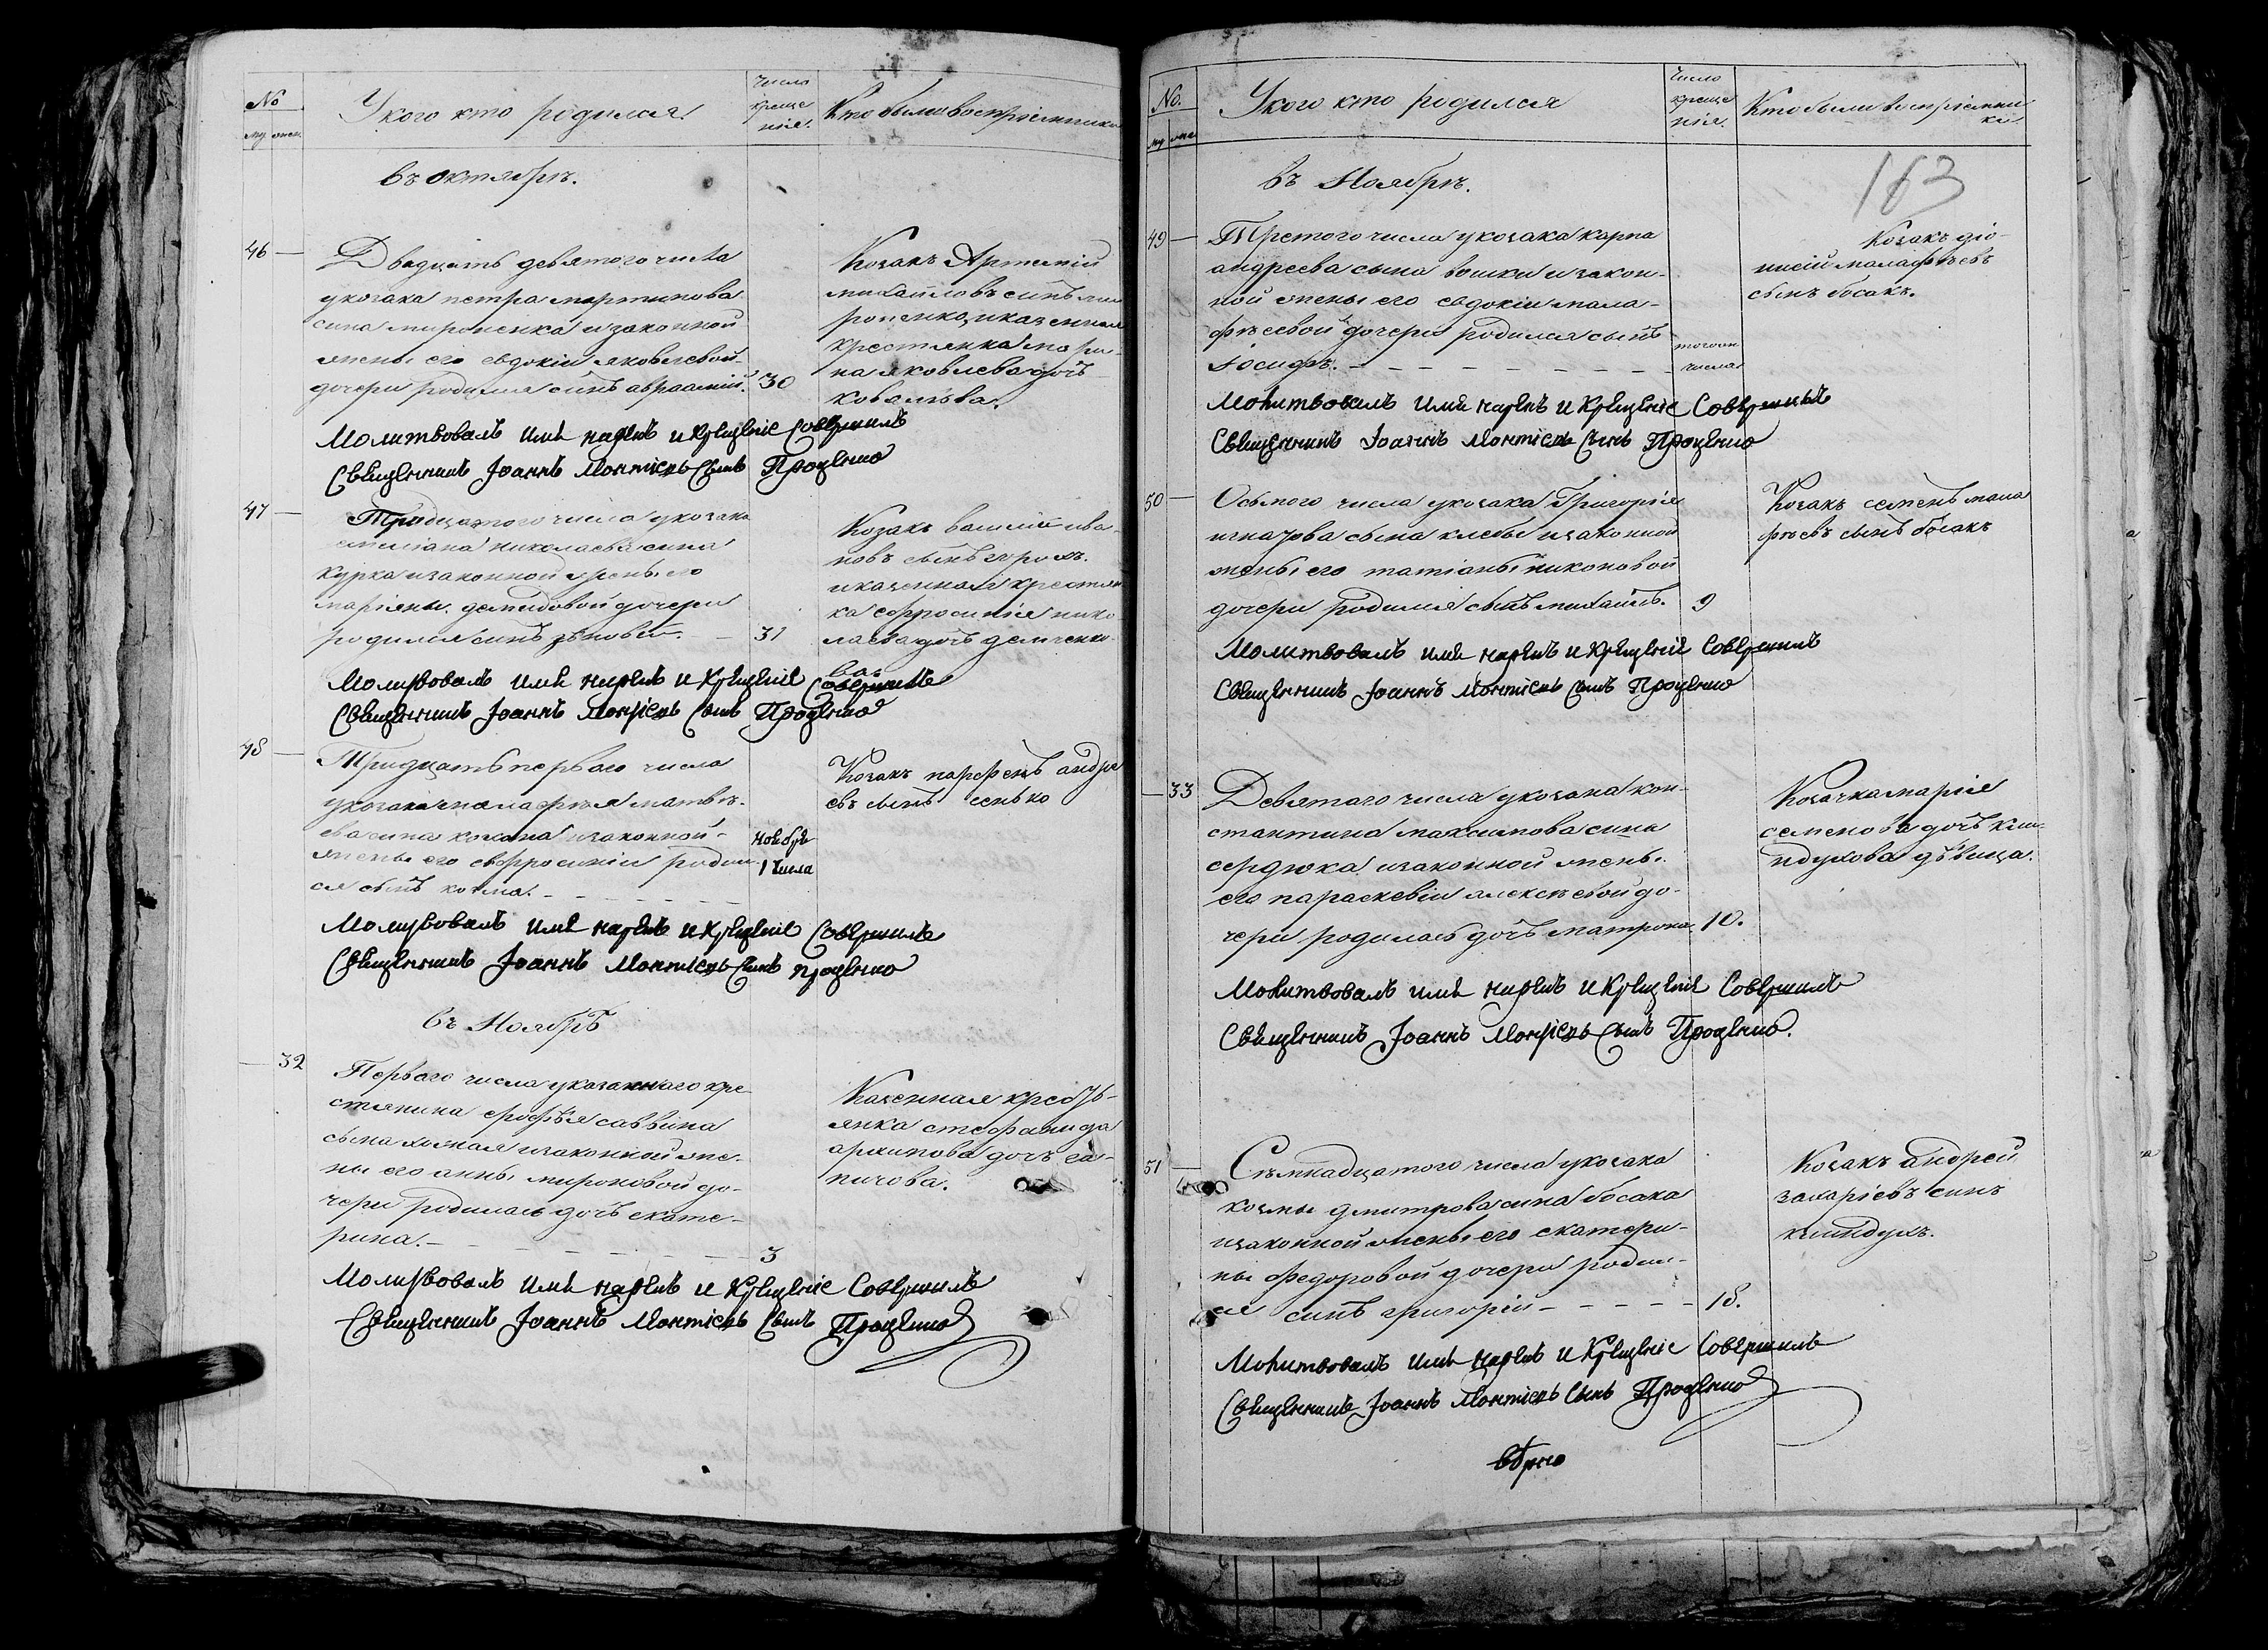 No
му жен
У кого кто родился
число креще нія.
Кто были воспріемники
въ октябрѣ.
46
Двадцать девятого числа
у козака петра мартинова
сина мироненка и законной
жены его евдокіи яковлевой
дочери родился синъ авраамій.
30
Козакъ Артемій
михайловъ синъ ми
роненко, и казенная
крестянка мари
на яковлева дочь
ковалѣва.
Молитвовалъ имя нарекъ и крещеніе совершилъ
Священникъ Іоаннъ сынъ Проценко
47
Тридцатого числа у козака
емиліана николаева сина
курка и законной жены его
маріяны демидовой дочери
родился синъ зѣновей.
31
Козакъ василій ива
новъ сынъ
и казенная крестян
ка ефросинія нико
лаева дочь демченко
ва.
Молитвовалъ имя нарекъ и крещеніе совершилъ
Священникъ Іоаннъ сынъ Проценко
48
Тридцать первого числа
у козака малафѣя матвѣ-
ева сина и законной-
жены его евфросиніи родил
ся сынъ козма.
ноября
1 числа
Козакъ парфенъ андре
евъ сынъ сенько
Молитвовалъ имя нарекъ и крещеніе совершилъ
Священникъ Іоаннъ сынъ проценко
въ Ноябрѣ
32
Первого числа у казенного кре
стянина ерофѣя саввина
сына и законной же-
ны его анны мироновой до-
чери родилась дочь екате-
рина.
3
Казенная кресть-
янка стефанида
архипова дочь га-
ничова.
Молитвовалъ имя нарекъ и крещеніе совершилъ
Священникъ Іоаннъ сынъ Проценко
No.
му жен
У кого кто родился
число креще нія.
Кто были воспріемни ки.
въ Ноябрѣ.
163
49
Третого числа у козака карпа
андреева сына вошки и закон-
ной жены его евдокіи мала-
фѣевой дочери родился сынъ
іосифъ.
того же
числа
Козакъ діо-
нисій малафѣевъ
сынъ босакъ.
Молитвовалъ имя нарекъ и крещеніе совершилъ
Священникъ Іоаннъ сынъ Проценко
50
Осьмого числа у козака Григорія
игнатова сына и законной
жены его татіаны никоновой
дочери родился сынъ михаилъ.
9
Козакъ семенъ мала
фѣевъ сынъ босакъ
Молитвовалъ имя нарекъ и крещеніе совершилъ
Священникъ Іоаннъ сынъ Проценко
33
Девятаго числа у козака кон-
стантина максимова сина
сердюка и законной жены
его параскевіи алексѣевой до-
чери родилась дочь матрона
10.
Козачка марія
семенова дочь кши-
ндухова дѣвица.
Молитвовалъ имя нарекъ и крещеніе совершилъ
Священникъ Іоаннъ сынъ Проценко.
51
Сѣмнадцатого числа у козака
козмы дмитрова сина босака
и законной жены его екатери-
ны федоровой дочери родил-
ся синъ григорій
18.
Козакъ андрей
захаріевъ синъ
кшиндухъ.
Молитвовалъ имя нарекъ и крещеніе совершилъ
Священникъ Іоаннъ сынъ Проценко
вѣрно